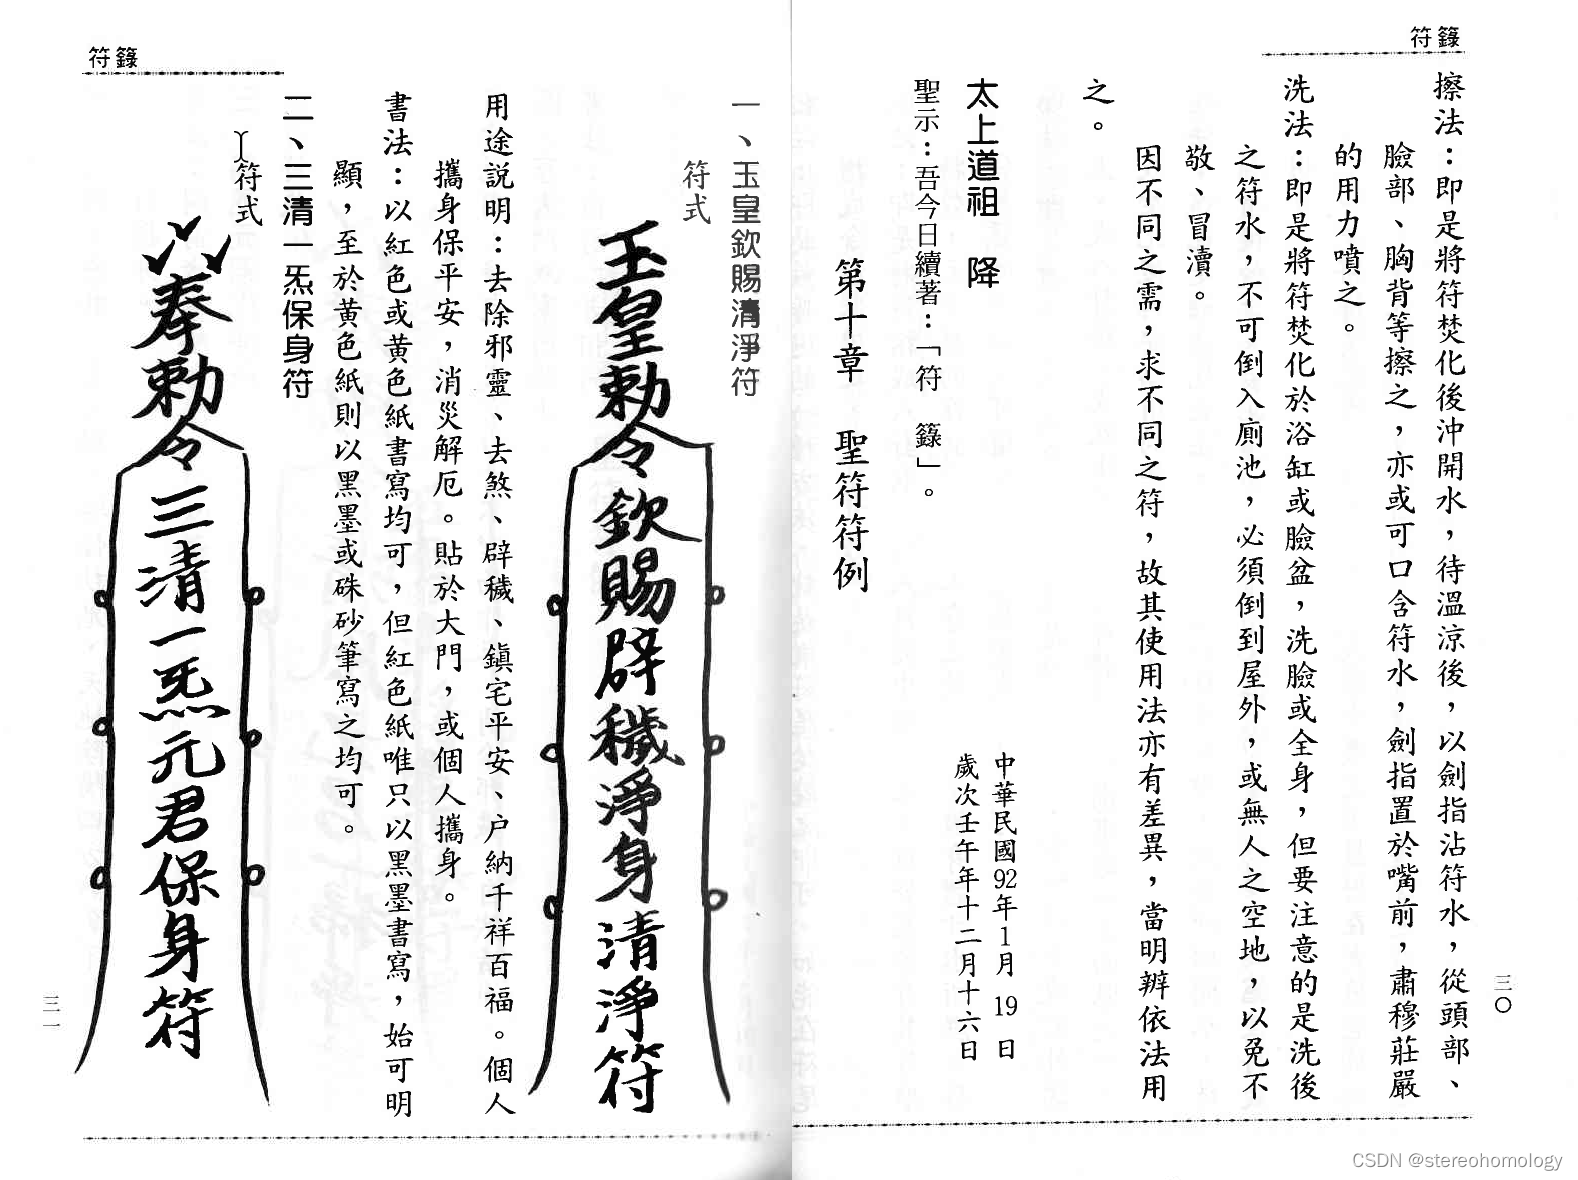 符籙
擦法：即是將符焚化後沖開水，待溫涼後，以劍指沾符水，從頭部、
臉部、胸背等擦之，亦或可口含符水，劍指置於嘴前，肅穆莊嚴
的用力噴之。
洗法：即是將符焚化於浴缸或臉盆，洗臉或全身，但要注意的是洗後
之符水，不可倒入廁池，必須倒到屋外，或無人之空地，以免不
敬、冒瀆。
因不同之需，求不同之符，故其使用法亦有差異，當明辨依法用
之。
中華民國92年1月19日
歲次壬午年十二月十六日
太上道祖 降
聖示：吾今日續著：「符 籙」。
第十章 聖符符例
三〇
符籙
一、玉皇欽賜清淨符
符式
玉皇勅令欽賜辟穢淨身清淨符
用途説明：去除邪靈、去煞、辟穢、鎮宅平安、户納千祥百福。個人
攜身保平安，消災解厄。貼於大門，或個人攜身。
書法：以紅色或黄色紙書寫均可，但紅色紙唯只以黑墨書寫，始可明
顯，至於黄色紙則以黑墨或硃砂筆寫之均可。
二、三清一炁保身符
符式
奉勅令三清一炁元君保身符
三一
CSDN @stereohomology